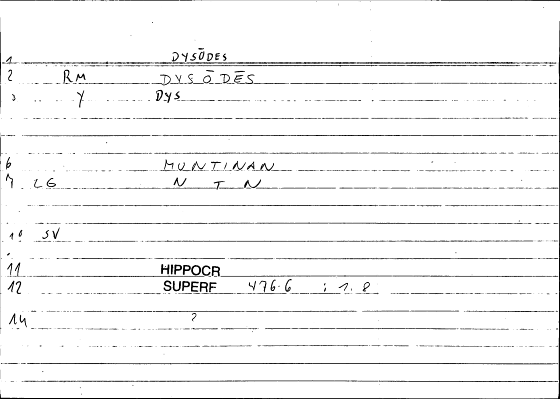 1 DYSŌDES
2 RM DYSŌDĒS
3 Y Dys
6 MUNTINAN
7 LG N T N
10 SV
11 HIPPOCR
12 SUPERF 476.6 : 1.8
14 ?